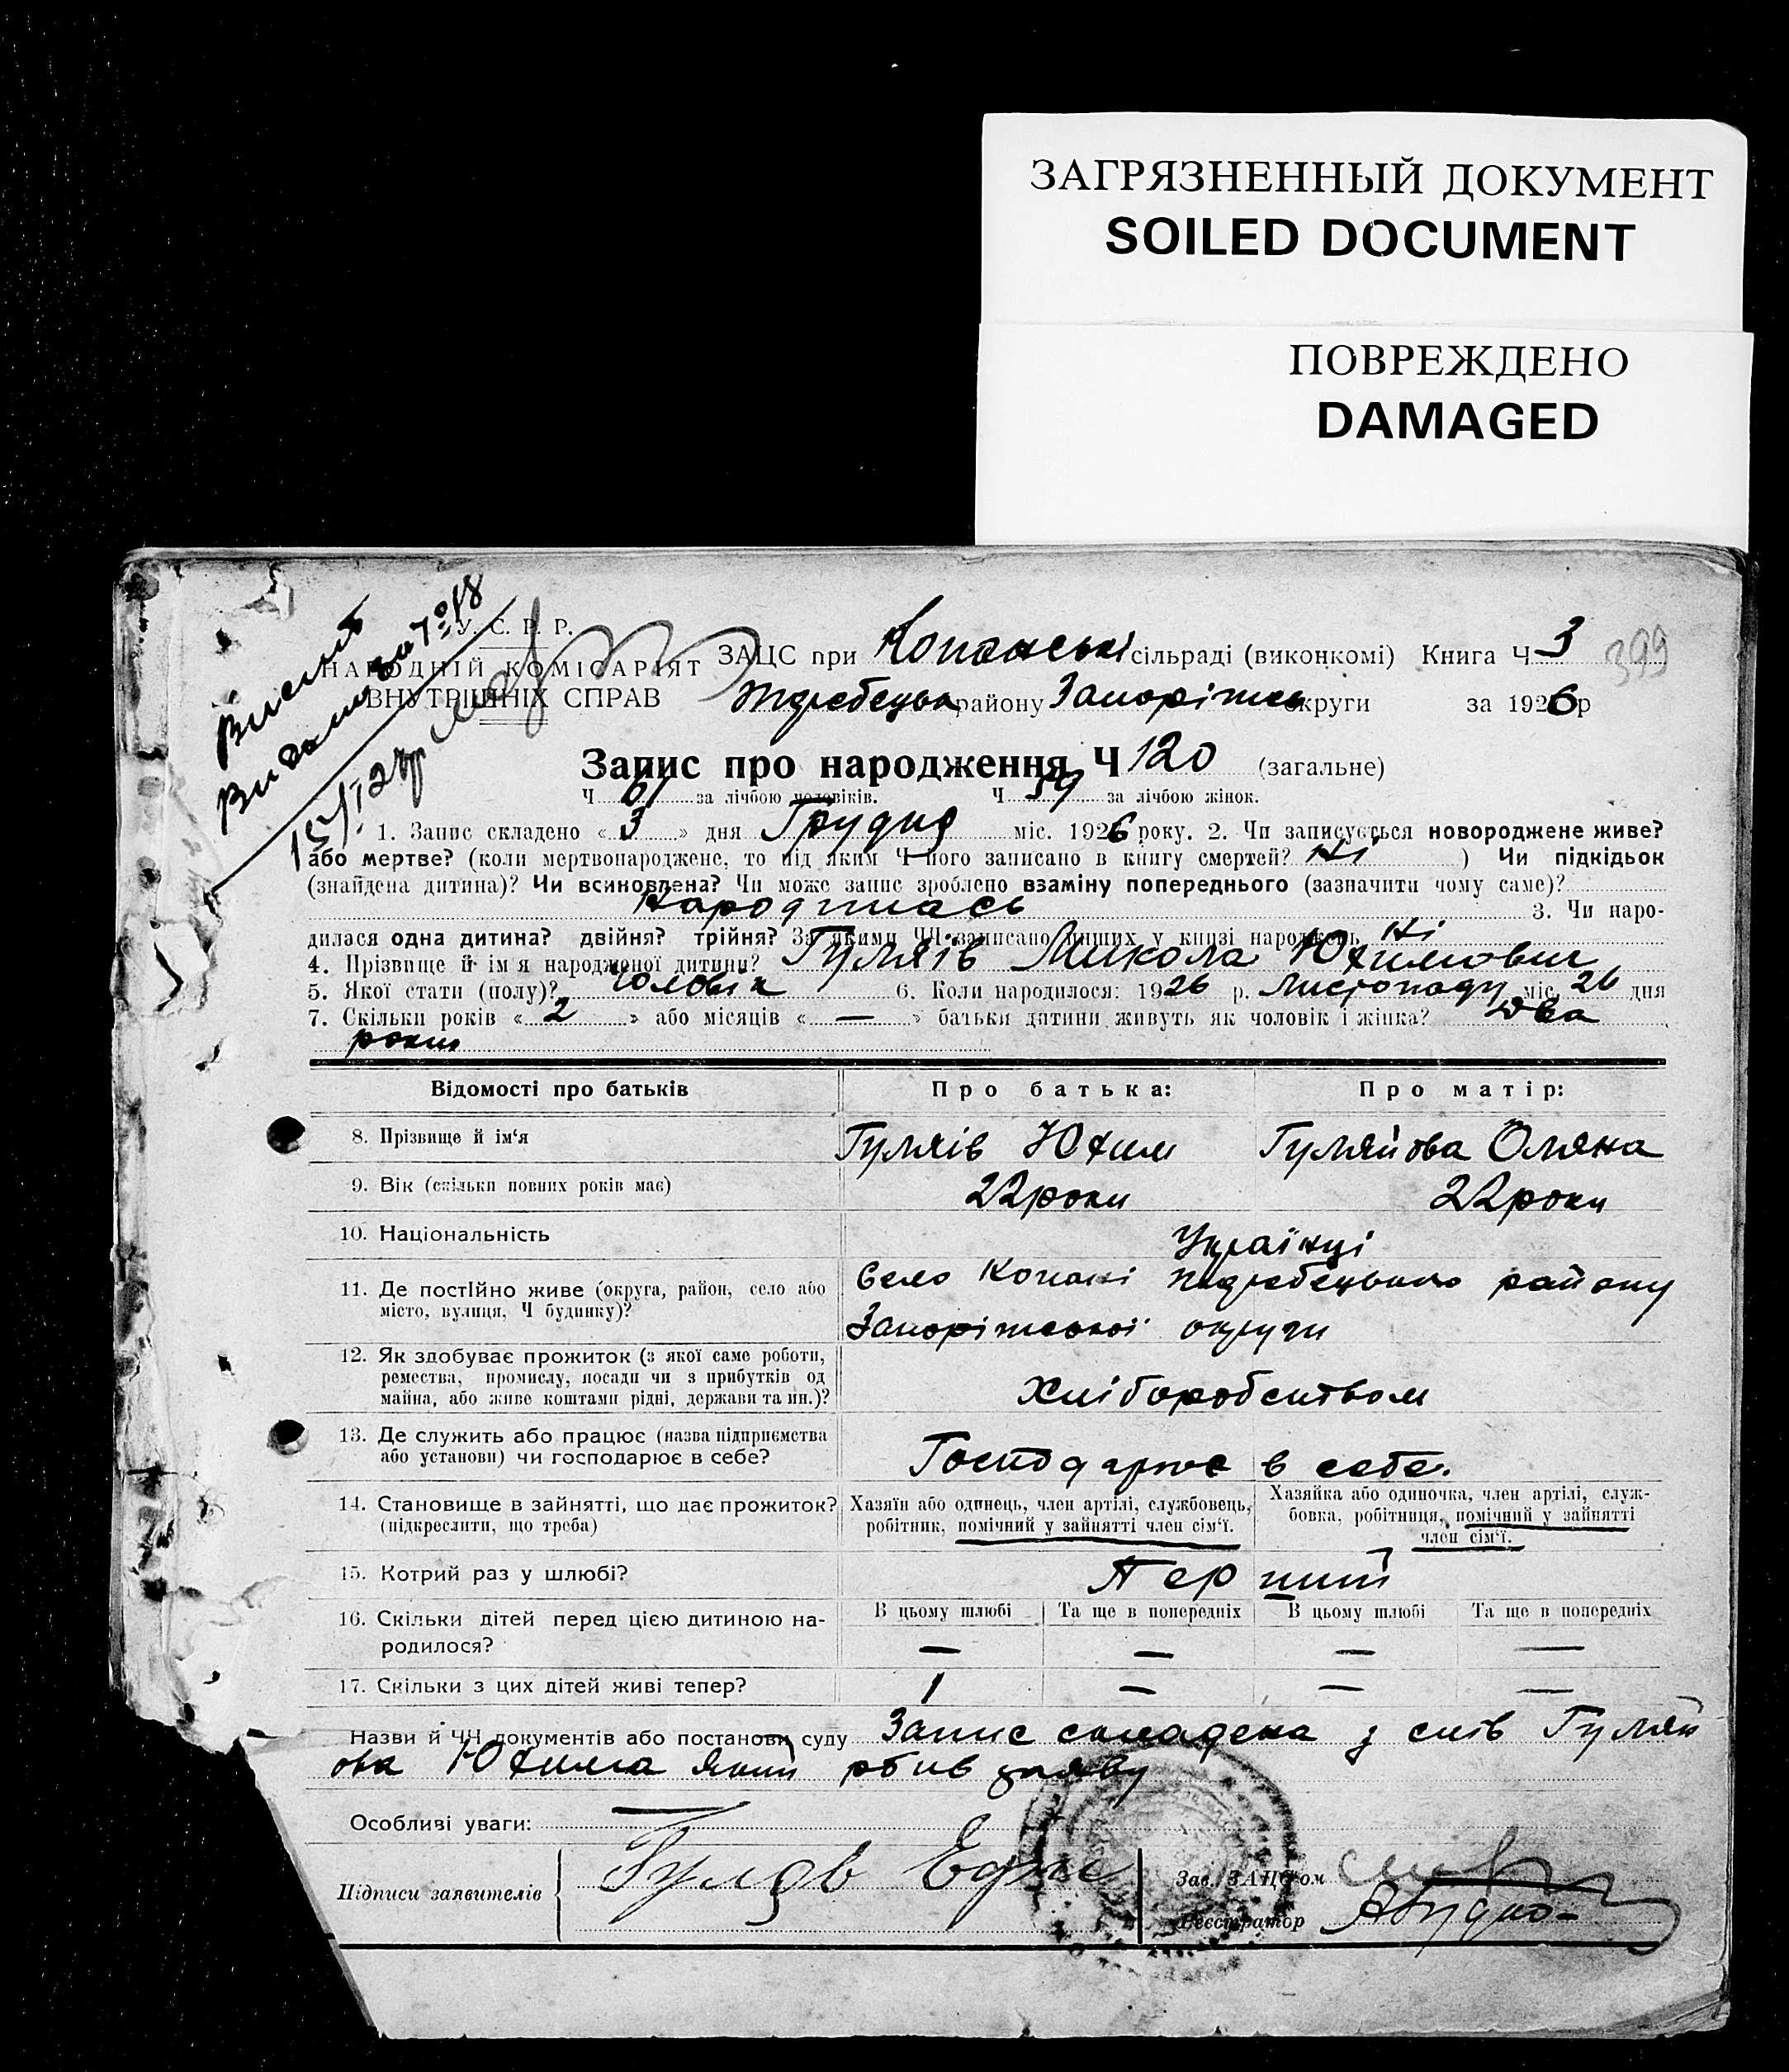 ЗАГРЯЗНЕННЫЙ ДОКУМЕНТ
SOILED DOCUMENT
ПОВРЕЖДЕНО
DAMAGED
399
У. С. Р. Р.
НАРОДНІЙ КОМІСАРІЯТ
ВНУТРІШНІХ СПРАВ
ЗАЦС при Копанські сільраді (виконкомі) Книга Ч 3
району Запоріжсь округи за 1926 р
Запис про народження Ч 120 (загальне)
Ч 61 за лічбою чоловіків. Ч 59 за лічбою жінок.
1. Запис складено « 3 » дня Грудня міс. 1926 року. 2. Чи записується новороджене живе?
або мертве? (коли мертвонароджене, то під яким Ч його записано в книгу смертей? Ні ) Чи підкідьок
(знайдена дитина)? Чи всиновлена? Чи може запис зроблено взаміну попереднього (зазначити чому саме)?
Народилась 3. Чи наро-
дилася одна дитина? двійня? трійня? За якими ЧЧ записано інших у книзі народжень Ні
4. Прізвище й ім'я народженої дитини? Гуляїв Микола Юхимович
5. Якої стати (полу)? Чоловік 6. Коли народилося: 1926 р. Листопаду міс. 26 дня
7. Скільки років « 2 » або місяців « — » батьки дитини живуть як чоловік і жінка? Два
роки
Відомості про батьків Про батька: Про матір:
8. Прізвище й ім'я Гуляїв Юхим Гуляйова Оляна
9. Вік (скільки повних років має) 22 роки 22 роки
10. Національність Українці
11. Де постійно живе (округа, район, село або
місто, вулиця, Ч будинку)?
Село Копані району
Запоріжської округи
12. Як здобуває прожиток (з якої саме роботи,
ремества, промислу, посади чи з прибутків од
майна, або живе коштами рідні, держави та ин.)?
Хліборобством
13. Де служить або працює (назва підприємства
або установи) чи господарює в себе?
Господарює в себе.
14. Становище в зайнятті, що дає прожиток?
(підкреслити, що треба)
Хазяїн або одинець, член артілі, службовець,
робітник, помічний у зайнятті член сім'ї.
Хазяйка або одиночка, член артілі, служ-
бовка, робітниця, помічний у зайнятті
член сім'ї.
15. Котрий раз у шлюбі? Перший
16. Скільки дітей перед цією дитиною на-
родилося?
В цьому шлюбі Та ще в попередніх В цьому шлюбі Та ще в попередніх
— — — —
17. Скільки з цих дітей живі тепер? 1 — — —
Назви й ЧЧ документів або постанови суду Запис складена з слів Гуляй
ова Юхима який заяву
Особливі уваги: —
Підписи заявителів Гуляв
Зав. ЗАЦС'ом
Реєстратор